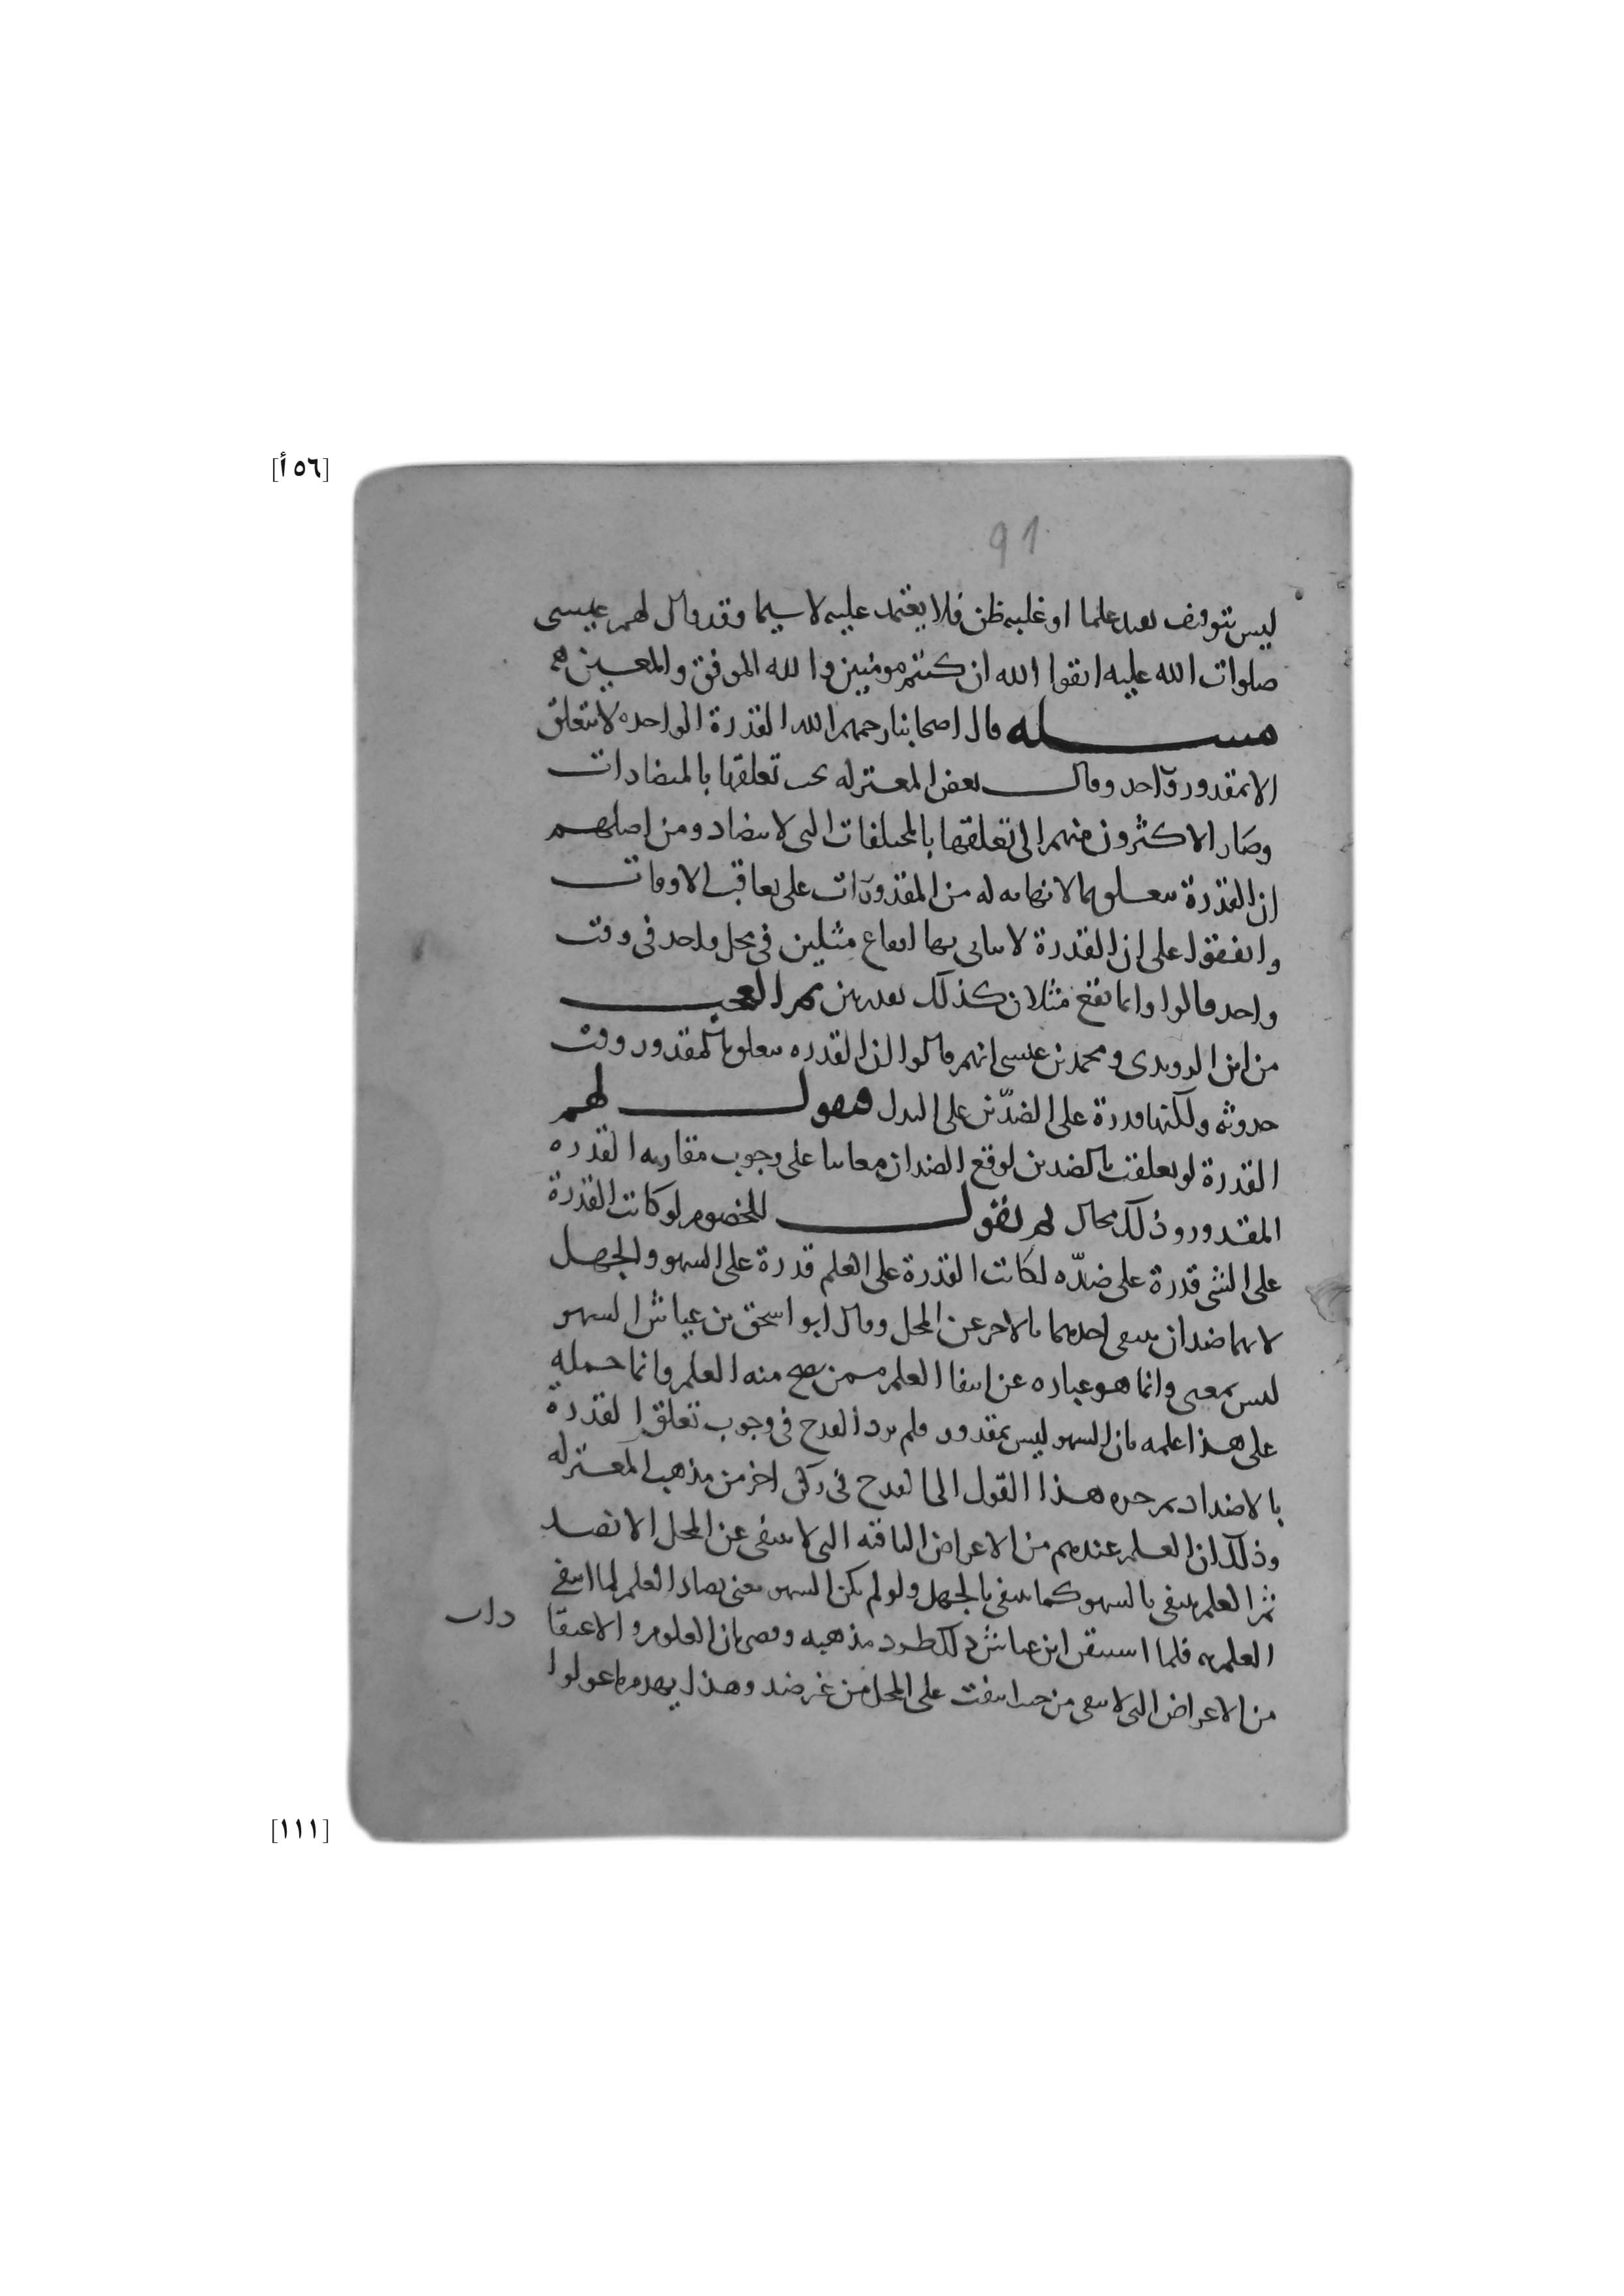 [٥٦ أ]
91
ليس بتوقف بعد علما او غلبه ظن فلا يعتمد عليه لا سيما وقد قال لهم عيسى
صلوات الله عليه اتقوا الله ان كنتم مومنين والله الموفق والمعين
مسله قال اصحابنا رحمهم الله القدرة الواحده لا تتعلق
الا بمقدور واحد وقال بعض المعتزله يجب تعلقها بالمتضادات
وصار الاكثرون منهم الى تعلقها بالمختلفات التى لا تتضاد ومن اصلهم
ان القدرة تتعلق بما لا نهايه له من المقدورات على تعاقب الاوقات
واتفقوا على ان القدرة لا يتاتى بها ايقاع مثلين فى محل واحد فى وقت
واحد قالوا وانما يقع مثلان كذلك بقدرتين ثم العجب
من ابن الروندى ومحمد بن عيسى انهم قالوا ان القدره تتعلق بالمقدور وقت
حدوثه ولكنها قدرة على الضدّين على البدل فنقول لهم
القدرة لو تعلقت بالضدين لوقع الضدان معا بنا على وجوب مقارنه القدره
المقدور وذلك محال ثم نقول للخصوم لو كانت القدرة
على الشى قدرة على ضدّه لكانت القدرة على العلم قدرة على السهو والجهل
لانهما ضدان ينتفى احدهما بالاخر عن المحل وقال ابو اسحق بن عياش السهو
ليس بمعنى وانما هو عباره عن انتفا العلم ممن يصح منه العلم وانما حمله
على هذا علمه بان السهو ليس بمقدور ولم يرد القدح فى وجوب تعلق القدرة
بالاضداد ثم جره هذا القول الى القدح فى ركن اخر من مذهب المعتزله
وذلك ان العلم عندهم من الاعراض الباقيه التى لا تنتفى عن المحل الا بضد
ثم العلم ينتفى بالسهو كما ينتفى بالجهل ولو لم يكن السهو معنى يضاد العلم لما انتفى
العلم به فلما استيقن ابن عياش ذلك طرد مذهبه وقضى بان العلوم والاعتقا
دات
من الاعراض التى لا تبقى من حيث انتفت على المحل من غير ضد وهذا يهدم ما عولوا
[١١١]